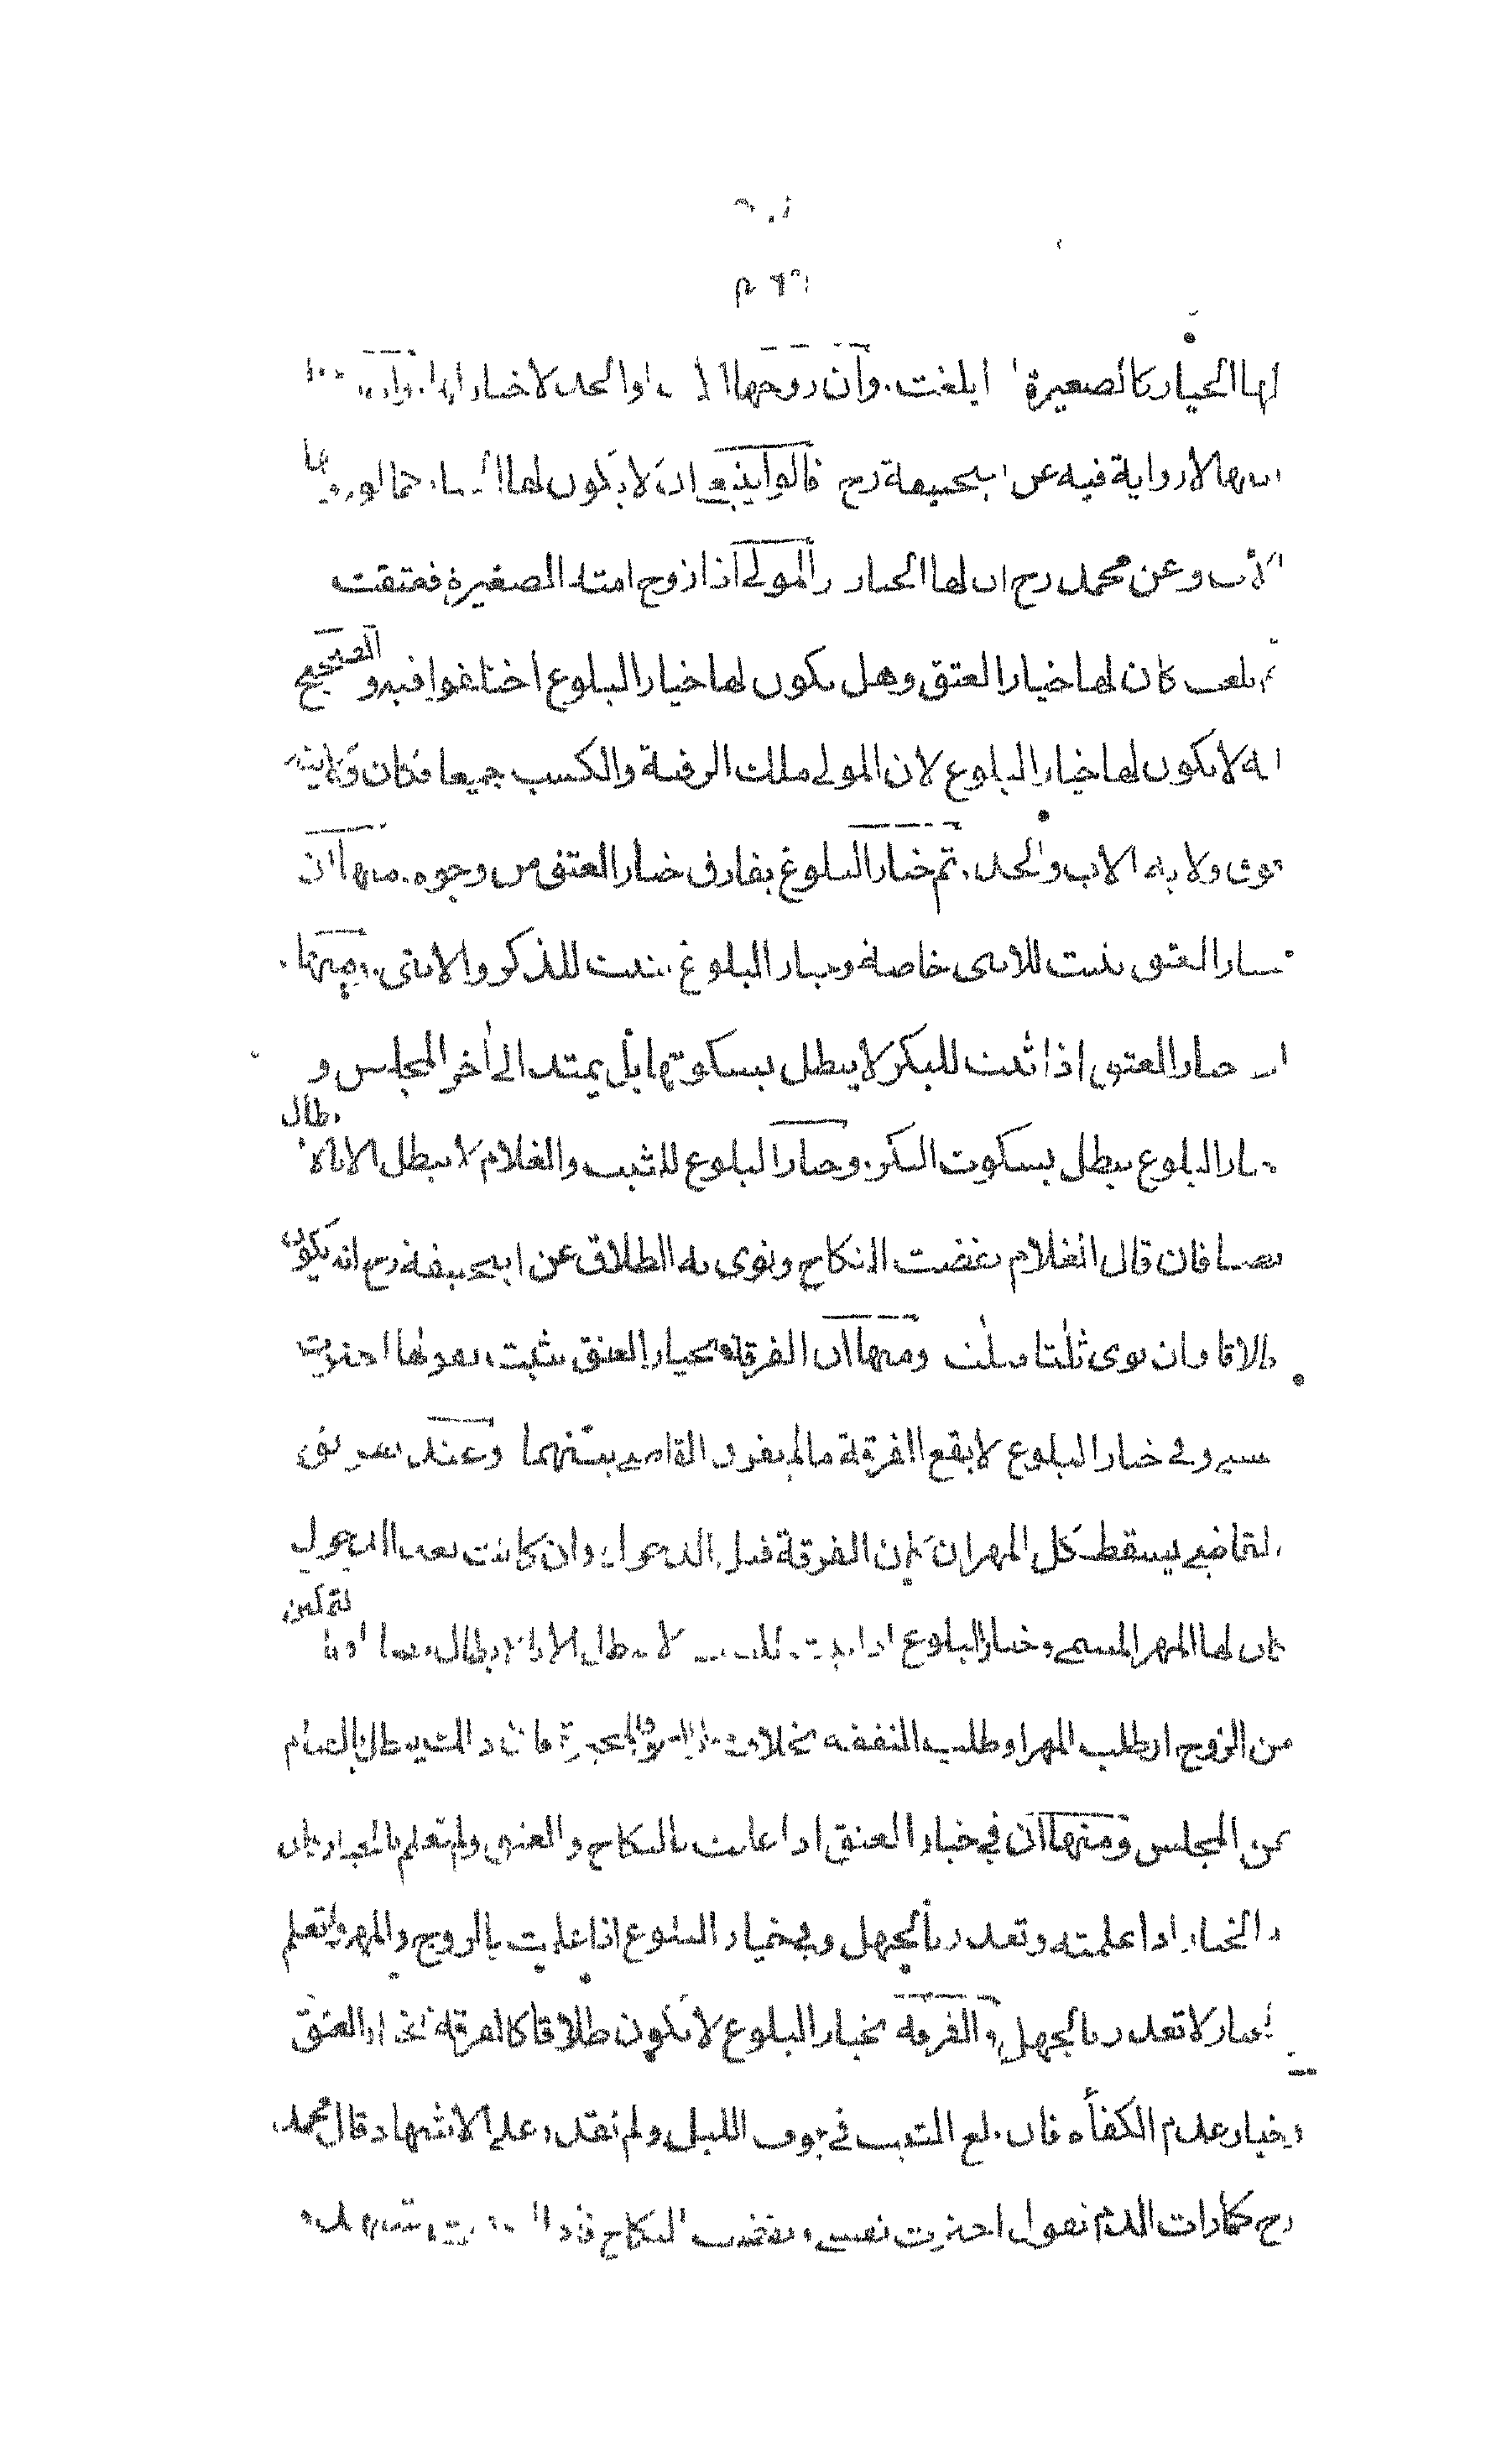 لها الخيار كالصغيرة اذا بلغت . وان زوجها الاب او الجد لا خيار لها .
ابنها لا رواية فيه عن ابيحنيفة رح قالوا ينبغي ان لا يكون لها الخيار كما لو زوجها
الاب وعن محمد رح ان لها الخيار والمولى اذا زوج امته الصغيرة فعتقت
ثم بلغت كان لها خيار العتق وهل يكون لها خيار البلوغ اختلفوا فيه والصحيح
انه لا يكون لها خيار البلوغ لان المولى ملك الرقبة والكسب جميعا فكان ولايته
فوق ولاية الاب والجد . ثم خيار البلوغ يفارق خيار العتق من وجوه . منها ان
خيار العتق يثبت للانثى خاصة وخيار البلوغ يثبت للذكر والانثى . ومنها
ان خيار العتق اذا ثبت للبكر لا يبطل بسكوتها بل يمتد الى اخر المجلس و
خيار البلوغ يبطل بسكوت البكر . وخيار البلوغ للثيب والغلام لا يبطل الا بالابطال
نصا فان قال الغلام نقضت النكاح ونوى به الطلاق عن ابيحنيفة رح انه يكون
طلاقا وان نوى ثلثا فثلث ومنها ان الفرقة بخيار العتق يثبت بقولها اخترت
نفسي وفي خيار البلوغ لا يقع الفرقة ما لم يفرق القاضي بينهما وعند تفريق
القاضي يسقط كل المهر ان كان الفرقة قبل الدخول وان كانت بعد الدخول
كان لها المهر المسمى وخيار البلوغ اذا ثبت للثيب لا يبطل الا بالابطال نصا او بالتمكين
من الزوج او طلب المهر او طلب النفقة بخلاف فان ذلك يبطل بالقيام
عن المجلس ومنها ان في خيار العتق اذا علمت بالنكاح والعتق ولم تعلم بالخيار كان
لها الخيار اذا علمته وتعذر بالجهل وفي خيار البلوغ اذا علمت بالزوج والمهر ولم تعلم
بالخيار لا تعذر بالجهل والفرقة بخيار البلوغ لا تكون طلاقا كالفرقة بخيار العتق
وخيار عدم الكفأة فان بلغ الثيب في جوف الليل ولم تقدر على الاشهاد قال محمد
رح كما رات الدم تقول اخترت نفسي ونقضت النكاح فاذا